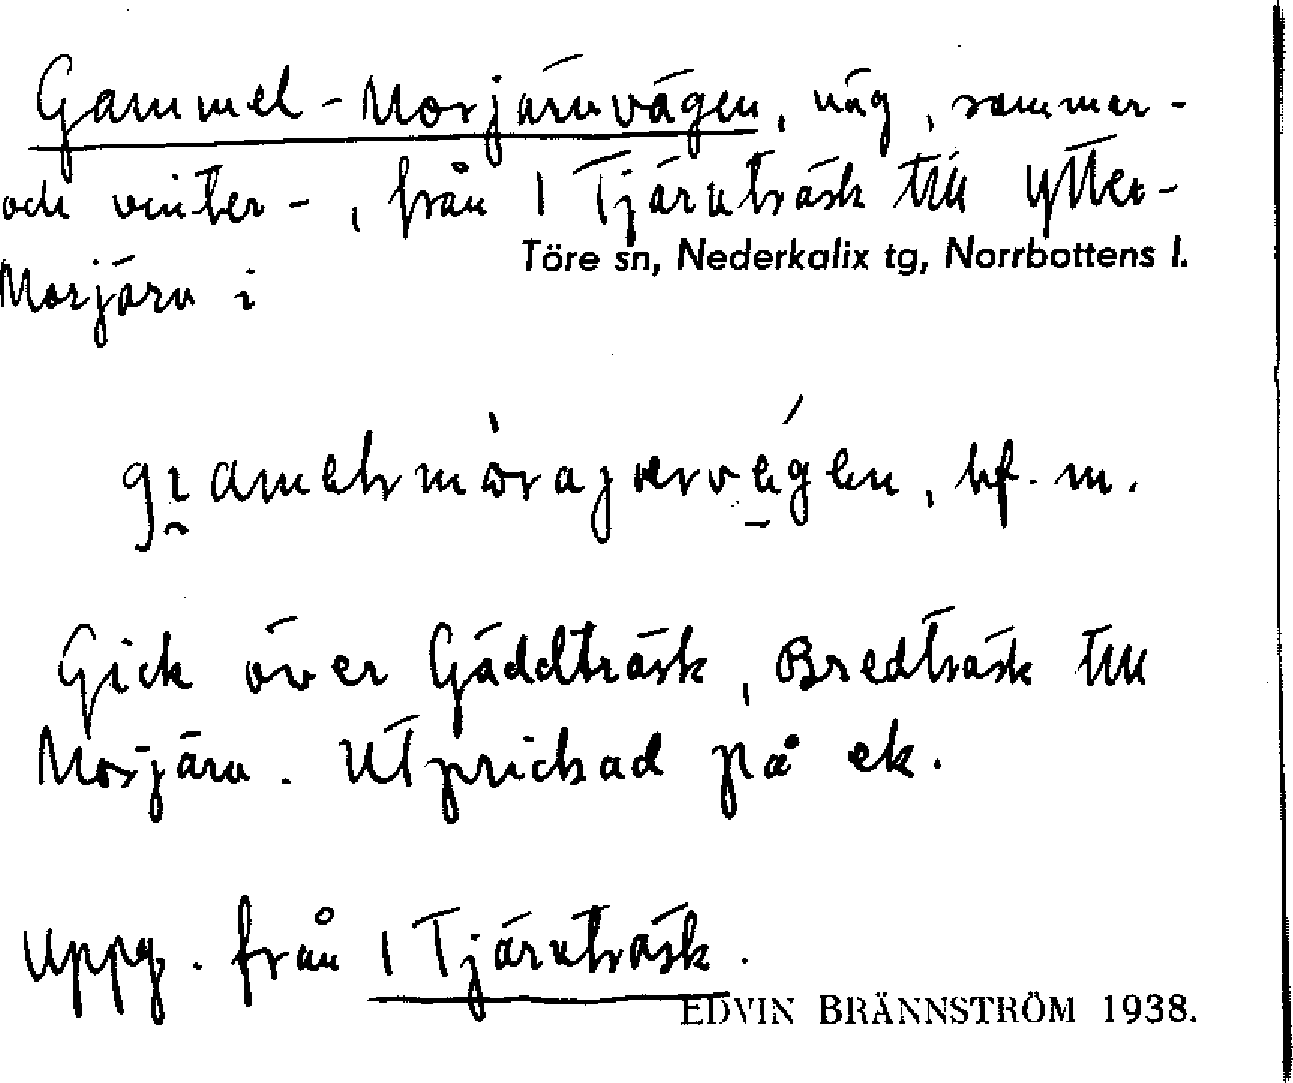 Gammel-Morjärnvägen, väg, sommer-
och vinter-, från 1 Tjärnträsk till Ytter-
Töre sn, Nederkalix tg, Norrbottens l.
Morjärn i
bf. m.
Gick över Gäddträsk, Bredträsk till
Morjärn. Utprickad på ek.
Uppg. från 1 Tjärnträsk.
EDVIN BRÄNNSTRÖM 1938.